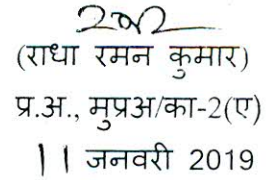 (राधा रमन कुमार)
प्र.अ., मुप्रअ/का-2(ए)
11 जनवरी 2019